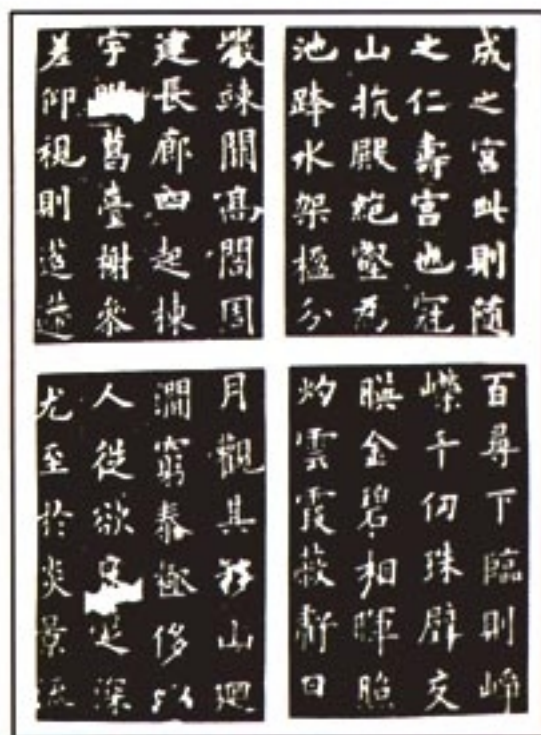 成之宮此則随
之仁壽宮也冠
山抗殿絶壑為
池跨水架楹分
巖竦闕高閣周
建長廊四起棟
宇葛臺榭參
差仰視則迢遰
百尋下臨則崢
嶸千仞珠璧交
暎金碧相暉照
灼雲霞蔽虧日
月觀其移山迴
澗窮泰極侈以
人從欲足深
尤至於炎景流